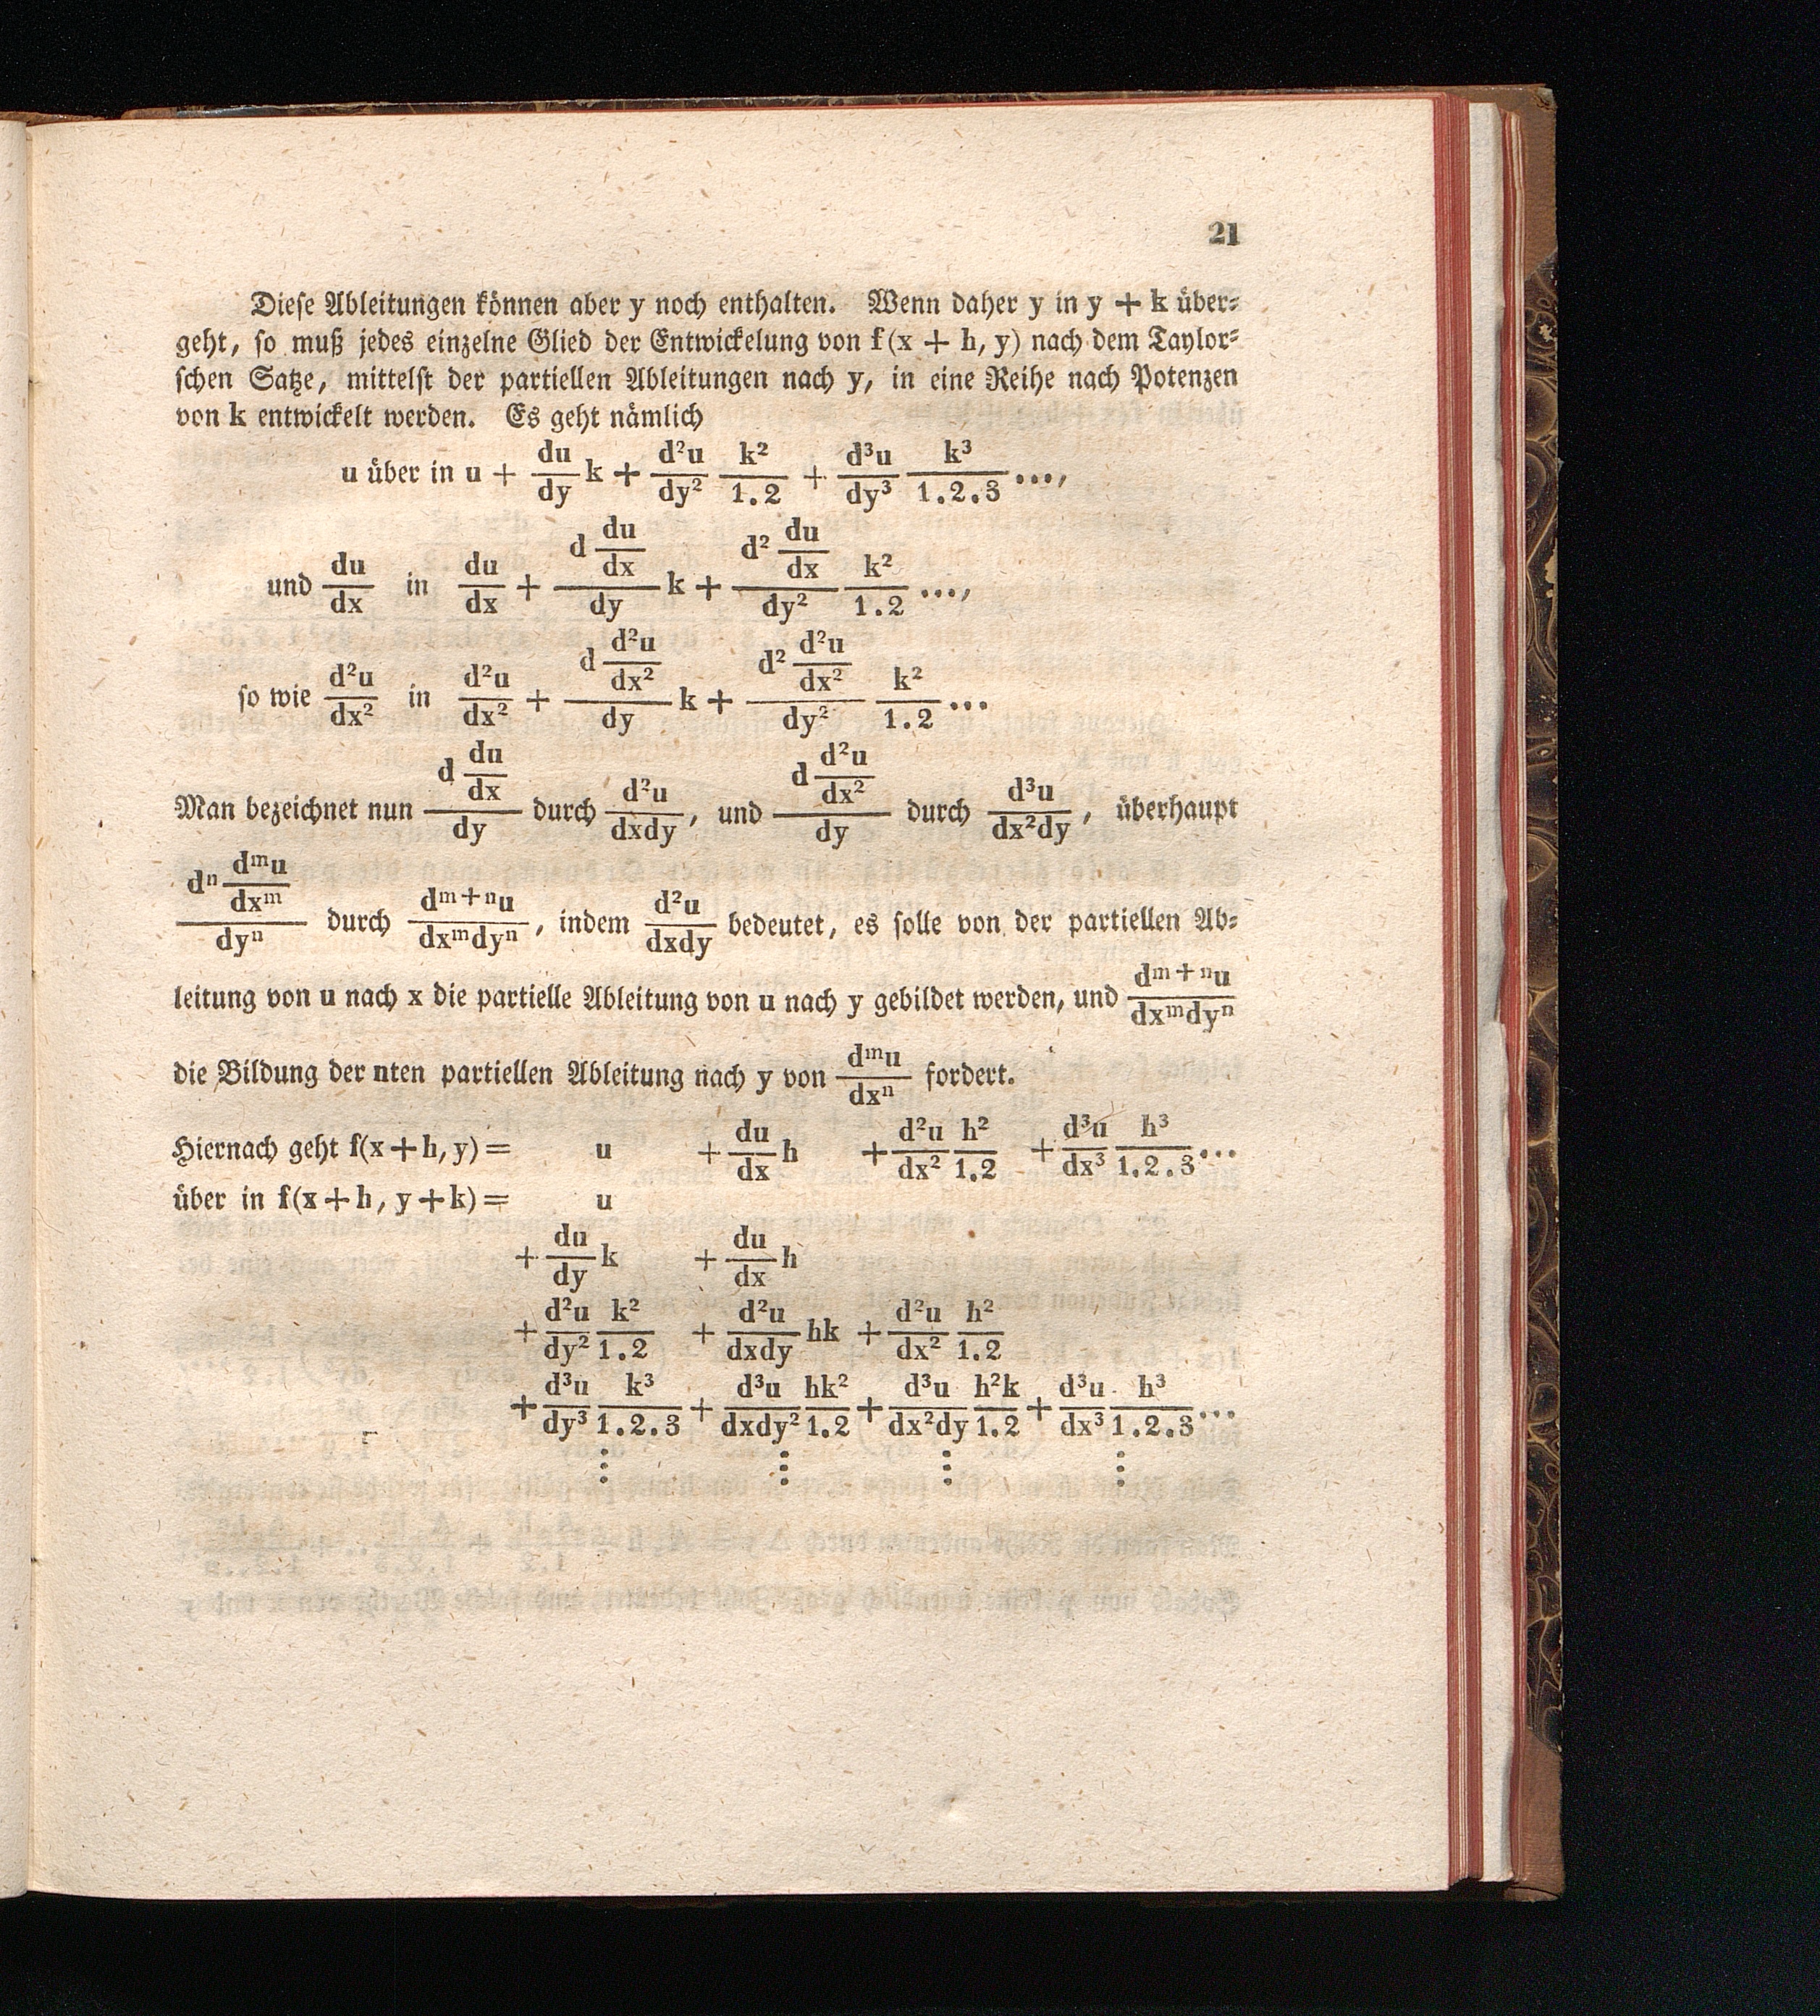 21
Diese Ableitungen können aber y noch enthalten. Wenn daher y in y + k über-
geht, so muß jedes einzelne Glied der Entwickelung von f(x + h, y) nach dem Taylor-
schen Satze, mittelst der partiellen Ableitungen nach y, in eine Reihe nach Potenzen
von k entwickelt werden. Es geht nämlich
u über in u + \frac{du}{dy} k + \frac{d²u}{dy²} \frac{k²}{1.2} + \frac{d³u}{dy³} \frac{k³}{1.2.3} ...,
und \frac{du}{dx} in \frac{du}{dx} + \frac{d \frac{du}{dx}}{dy} k + \frac{d² \frac{du}{dx}}{dy²} \frac{k²}{1.2} ...,
so wie \frac{d²u}{dx²} in \frac{d²u}{dx²} + \frac{d \frac{d²u}{dx²}}{dy} k + \frac{d² \frac{d²u}{dx²}}{dy²} \frac{k²}{1.2} ...
Man bezeichnet nun \frac{d \frac{du}{dx}}{dy} durch \frac{d²u}{dxdy}, und \frac{d \frac{d²u}{dx²}}{dy} durch \frac{d³u}{dx²dy}, überhaupt
\frac{dⁿ \frac{dᵐu}{dxᵐ}}{dyⁿ} durch \frac{dᵐ⁺ⁿu}{dxᵐdyⁿ}, indem \frac{d²u}{dxdy} bedeutet, es solle von der partiellen Ab-
leitung von u nach x die partielle Ableitung von u nach y gebildet werden, und \frac{dᵐ⁺ⁿu}{dxᵐdyⁿ}
die Bildung der nten partiellen Ableitung nach y von \frac{dᵐu}{dxⁿ} fordert.
Hiernach geht f(x + h, y) = u + \frac{du}{dx} h + \frac{d²u}{dx²} \frac{h²}{1.2} + \frac{d³u}{dx³} \frac{h³}{1.2.3} ...
über in f(x + h, y + k) = u
+ \frac{du}{dy} k + \frac{du}{dx} h
+ \frac{d²u}{dy²} \frac{k²}{1.2} + \frac{d²u}{dxdy} hk + \frac{d²u}{dx²} \frac{h²}{1.2}
+ \frac{d³u}{dy³} \frac{k³}{1.2.3} + \frac{d³u}{dxdy²} \frac{hk²}{1.2} + \frac{d³u}{dx²dy} \frac{h²k}{1.2} + \frac{d³u}{dx³} \frac{h³}{1.2.3} ...
⋮ ⋮ ⋮ ⋮